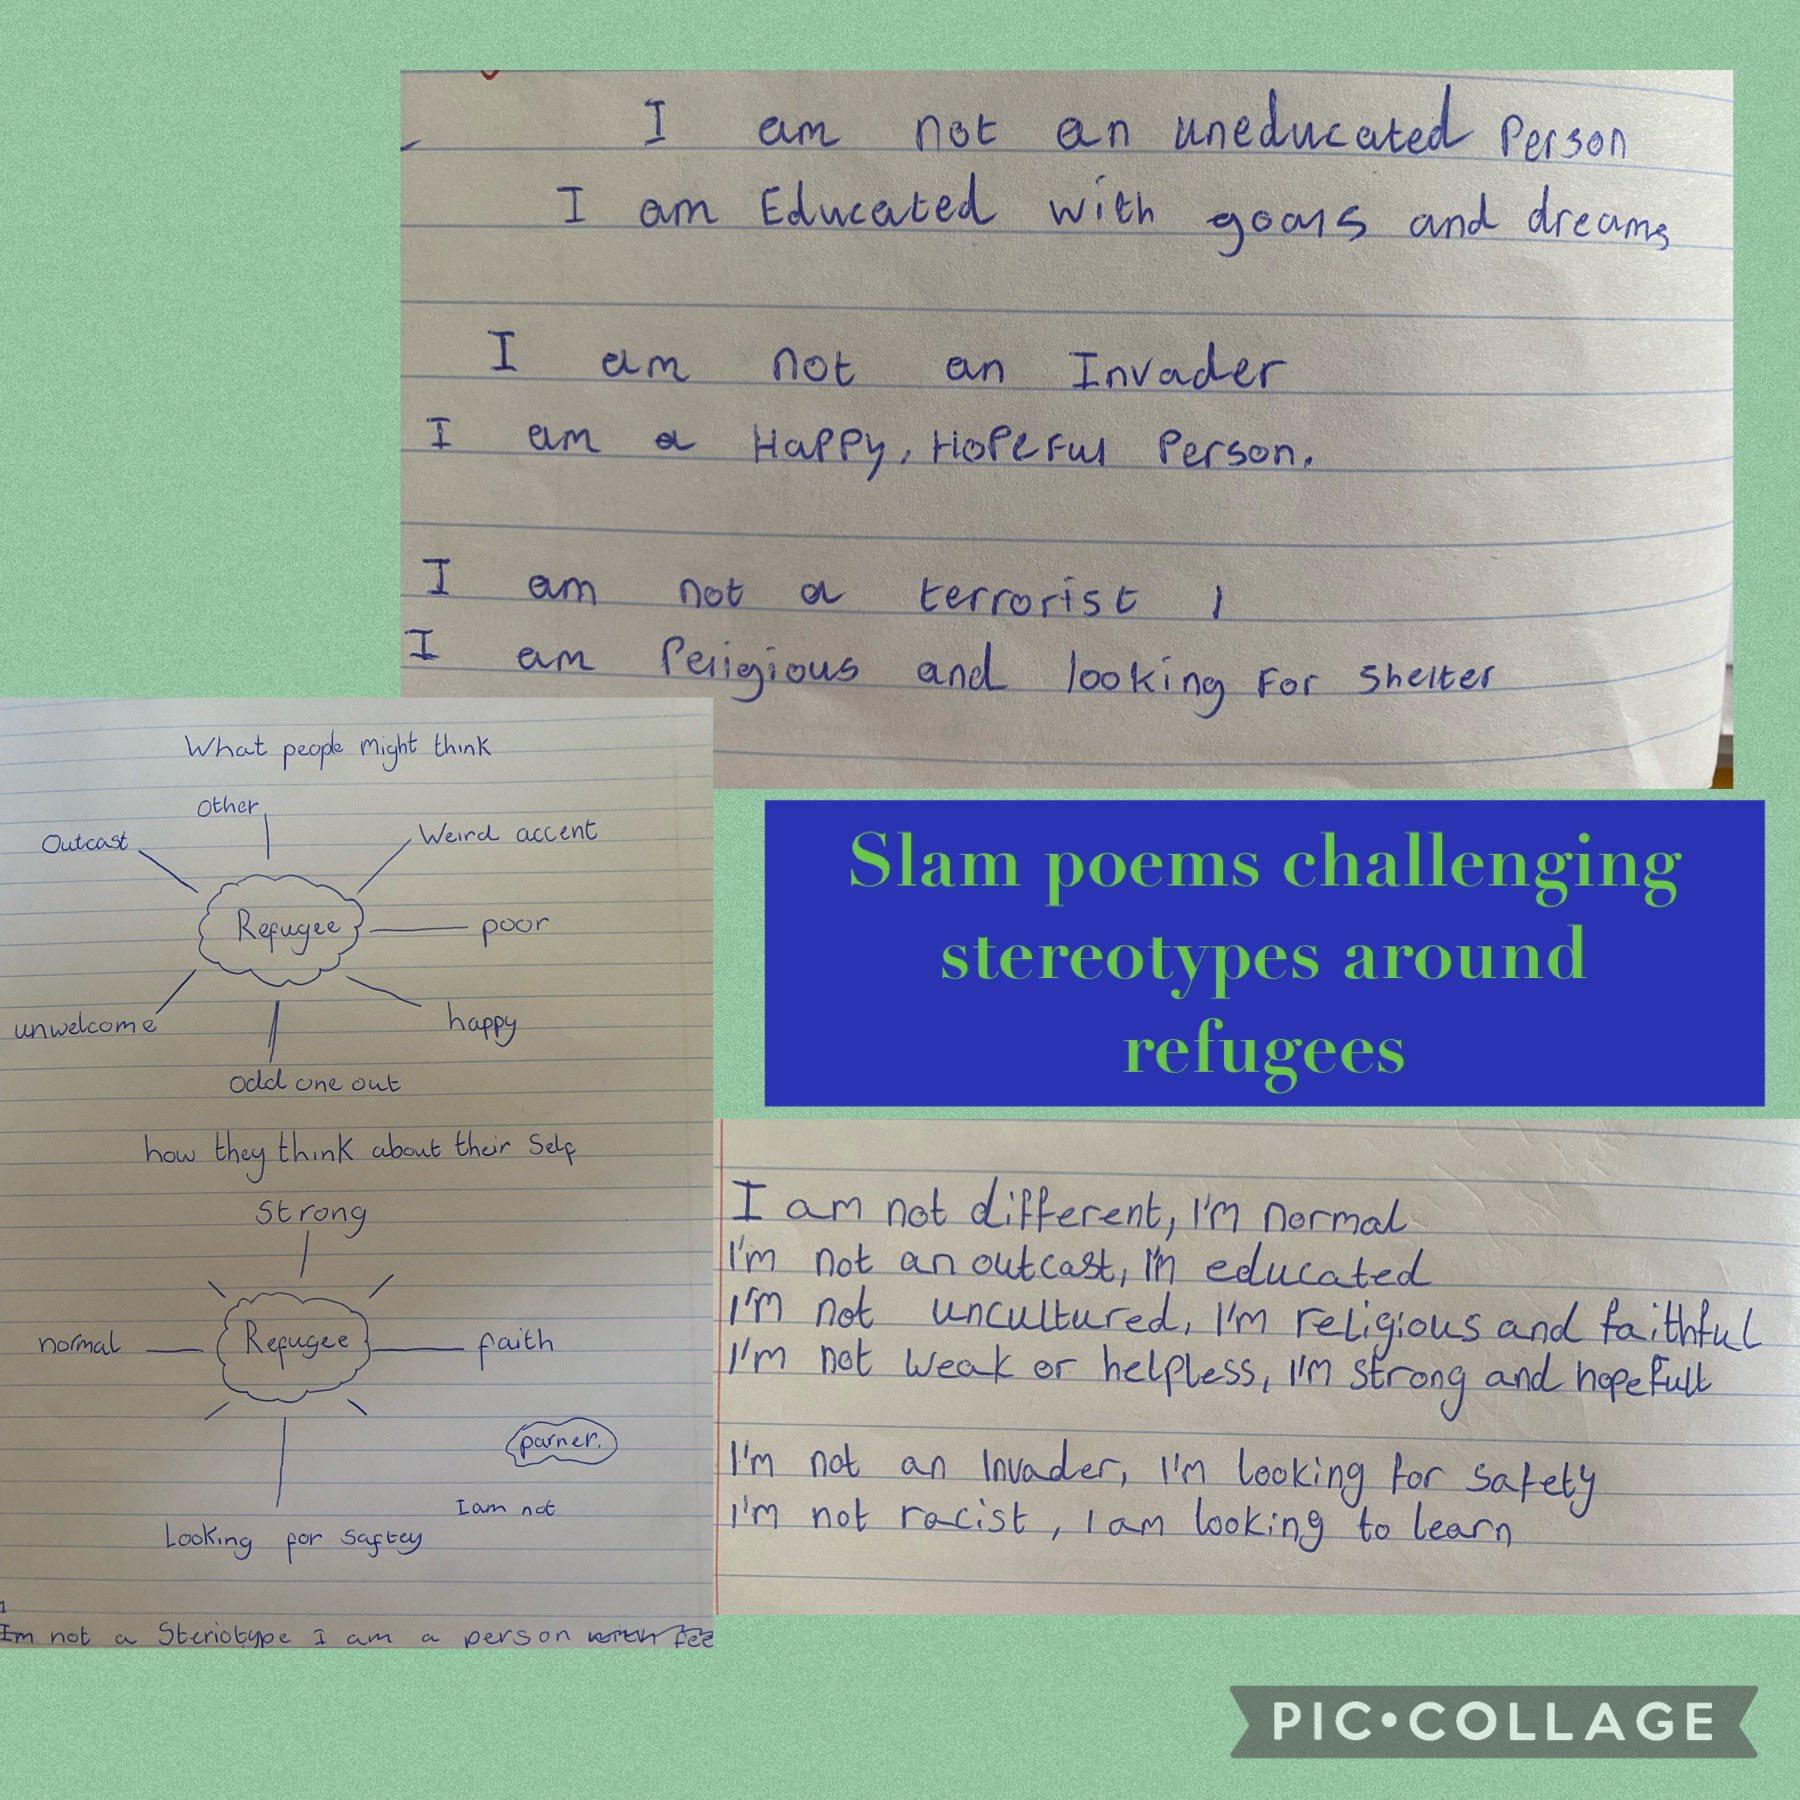 I am not an uneducated Person
I am Educated with goals and dreams
I am not an Invader
I am a Happy, Hopeful Person.
I am not a terrorist
I am Religious and looking For Shelter
What people might think
Other
Outcast
Weird accent
Refugee
poor
unwelcome
happy
odd one out
how they think about their Self
Strong
normal
Refugee
faith
parner.
I am not
Looking for Saftey
Im not a Steriotype I am a person with fee
Slam poems challenging
stereotypes around
refugees
I am not different, I'm normal
I'm not an outcast, I'm educated
I'm not uncultured, I'm religious and faithful
I'm not weak or helpless, I'm strong and hopefull
I'm not an Invader, I'm looking for safety
I'm not racist, I am looking to learn
PIC•COLLAGE